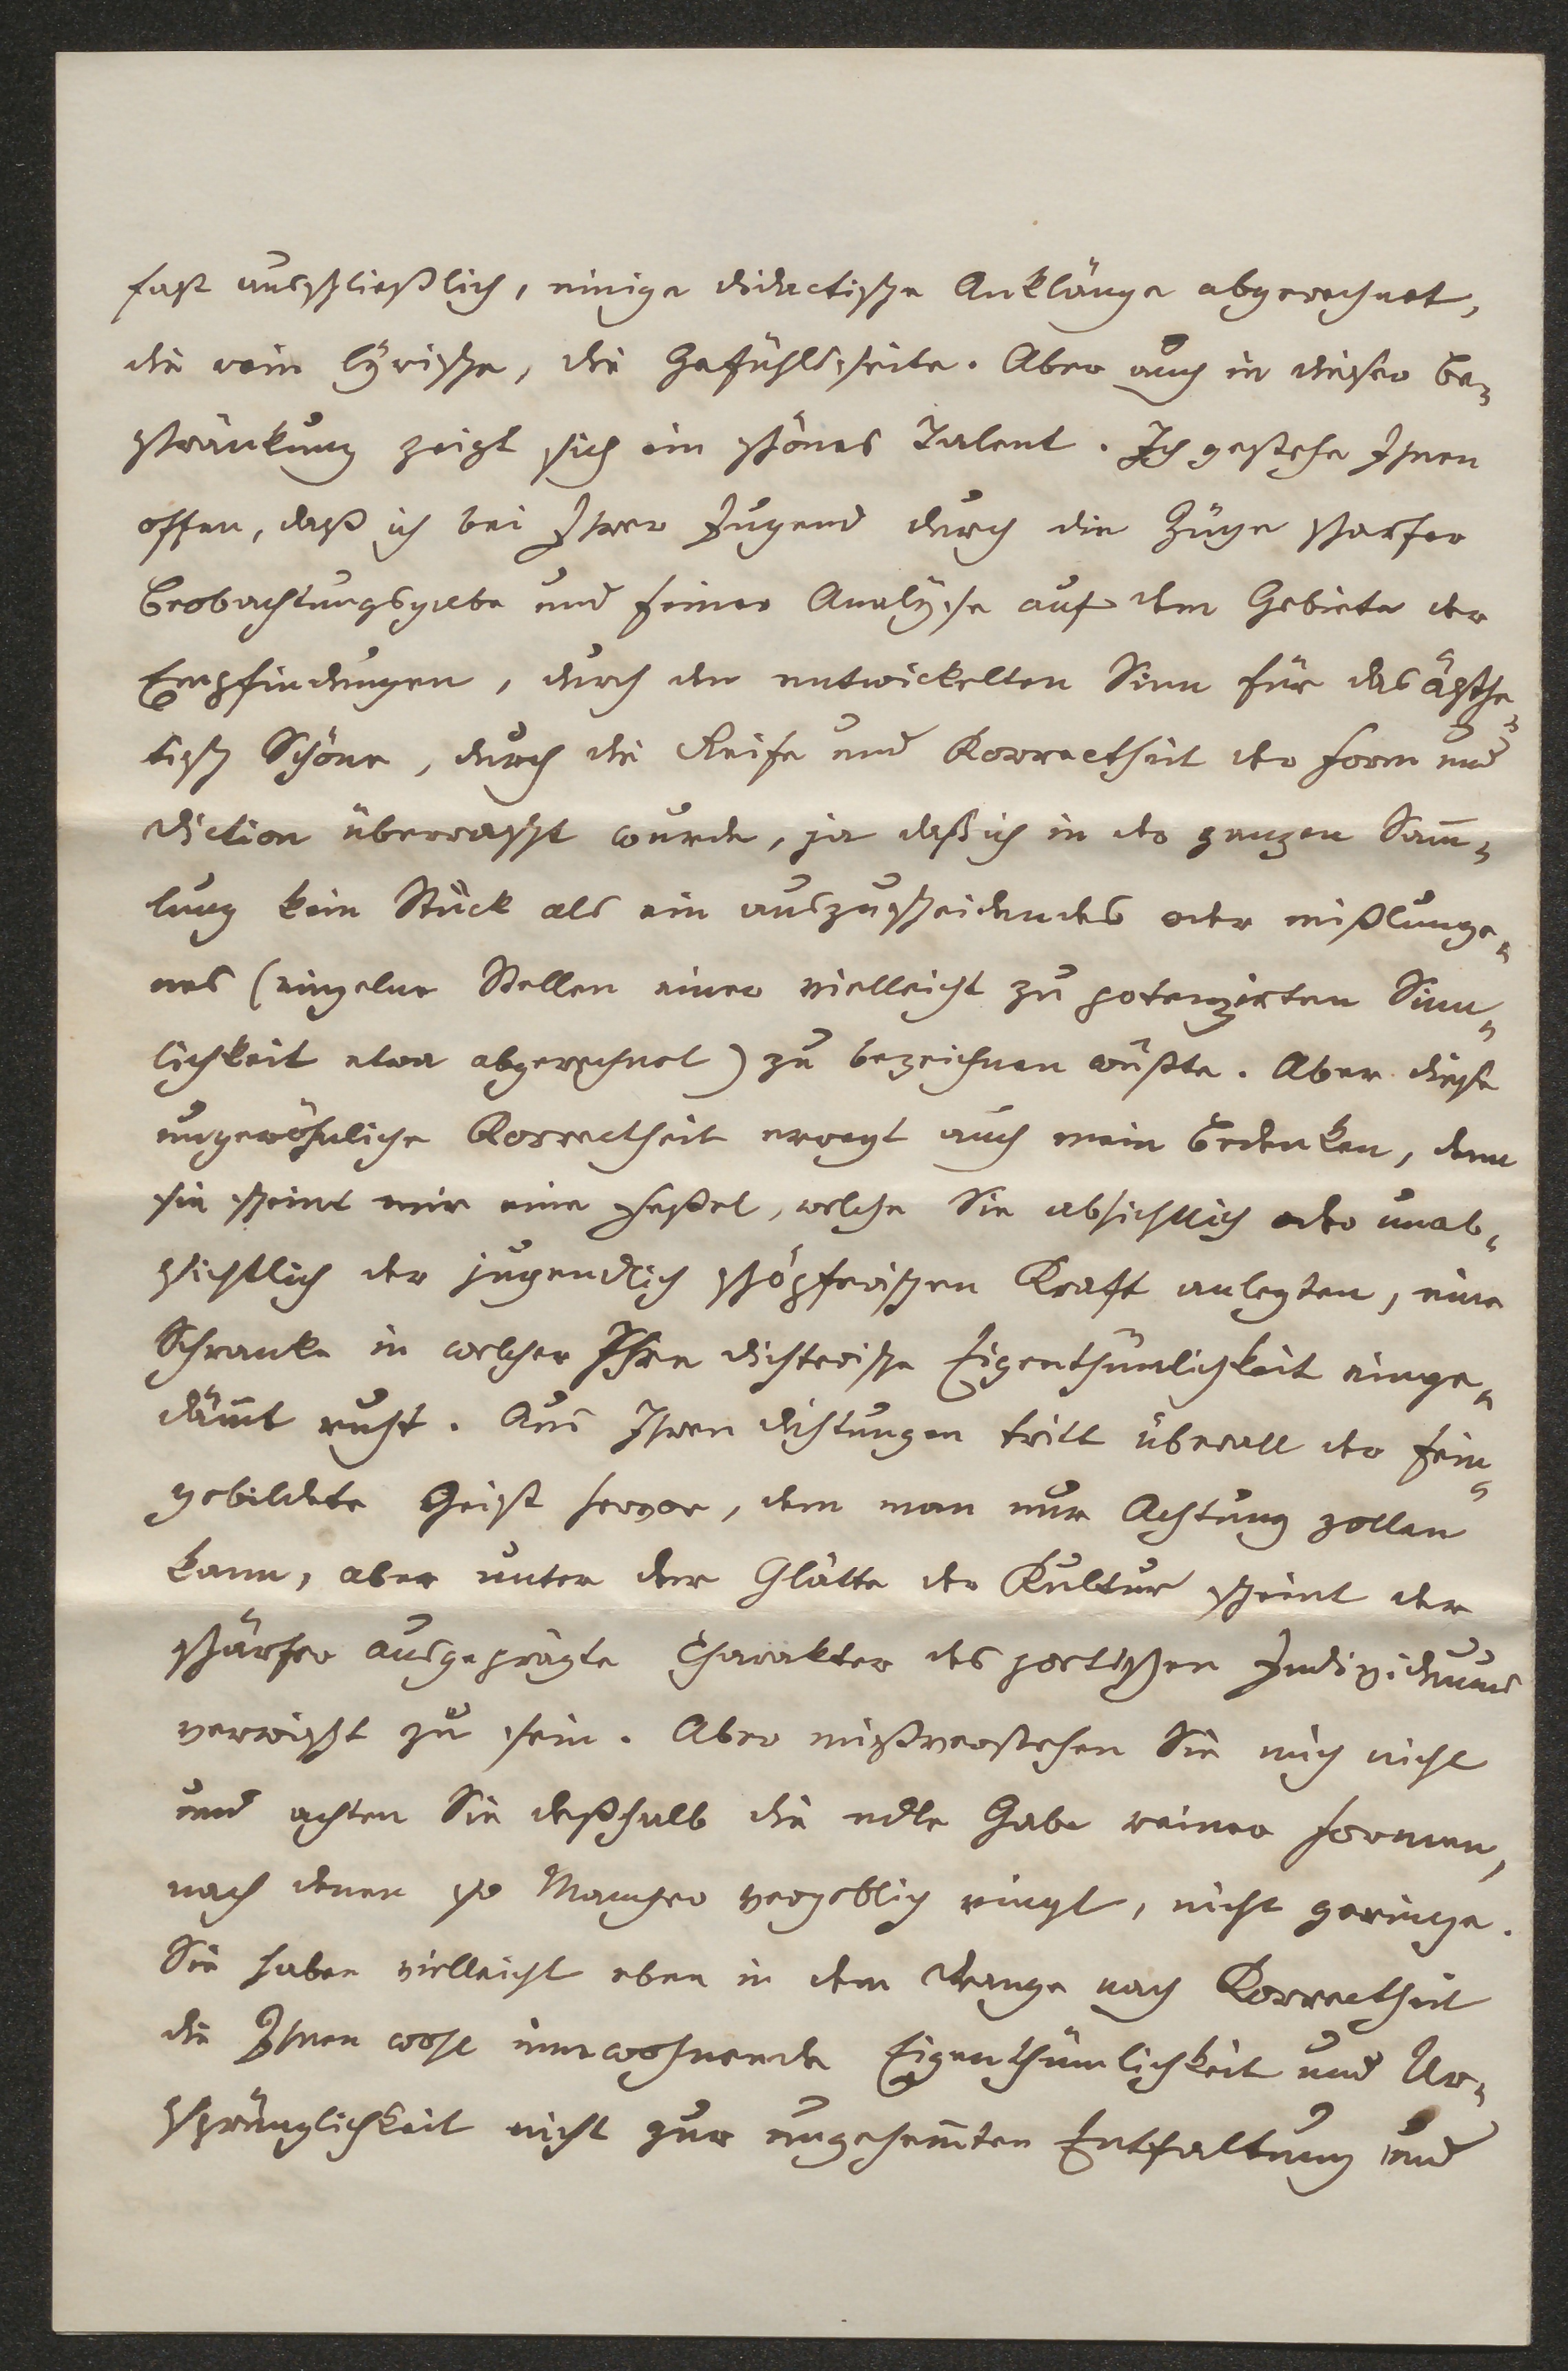 fast ausschließlich, einige didactische Anklänge abgerechnet,
die rein lÿrische, die Gefühlsseite. Aber auch in dieser Be-
schränkung zeigt sich ein schönes Talent. Ich gestehe Ihnen
offen, daß ich bei Ihrer Jugend durch die Züge scharfer
Beobachtungsgabe und feiner Analÿse auf dem Gebiete der
Empfindungen, durch den entwickelten Sinn für das ästhe-
tisch Schöne, durch die Reife und Korrectheit der Form und
Diction überrascht wurde, ja daß ich in der ganzen Sam̅-
lung kein Stück als ein auszuscheidendes oder mißlunge-
nes (einzelne Stellen einer vielleicht zu potenzirten Sinn-
lichkeit etwa abgerechnet) zu bezeichnen wüßte. Aber diese
ungewöhnliche Korrectheit erregt auch mein Bedenken, denn
sie scheint mir eine Feßel, welche Sie absichtlich oder unab-
sichtlich der jugendlich schöpferischen Kraft anlegten, eine
Schranke in welcher Ihre dichterische Eigenthümlichkeit einge-
däm̅t ruht. Aus Ihren Dichtungen tritt überall der fein-
gebildete Geist hervor, dem man nur Achtung zollen
kann, aber unter der Glätte der Kultur scheint der
schärfer ausgeprägte Charakter des poetischen Individuums
verwischt zu sein. Aber mißverstehen Sie mich nicht
und achten Sie deßhalb die edle Gabe reiner Formen,
nach denen so Mancher vergeblich ringt, nicht geringe.
Sie haben vielleicht eben in dem Drange nach Korrectheit
die Ihnen wohl innwohnende Eigenthümlichkeit und Ur-
sprünglichkeit nicht zur ungehem̅ten Entfaltung und